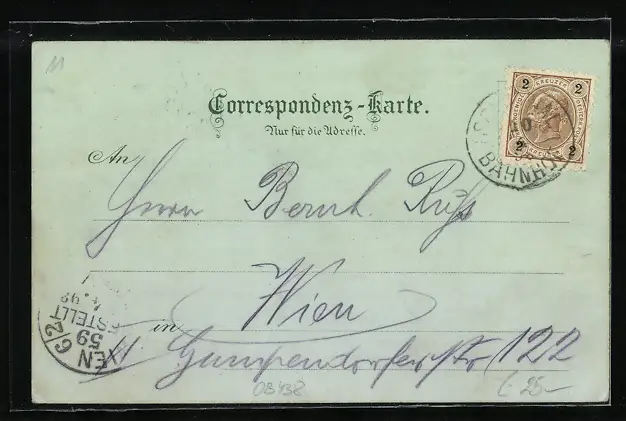 11
Correspondenz-Karte.
Nur für die Adresse.
2 KREUZER 2
2 2
BAHNHOF
An
Herrn Bernh. Ruß
Wien
in
VI. Gumpendorferstr 122
EN
6/2
59
BESTELLT
08438
25-